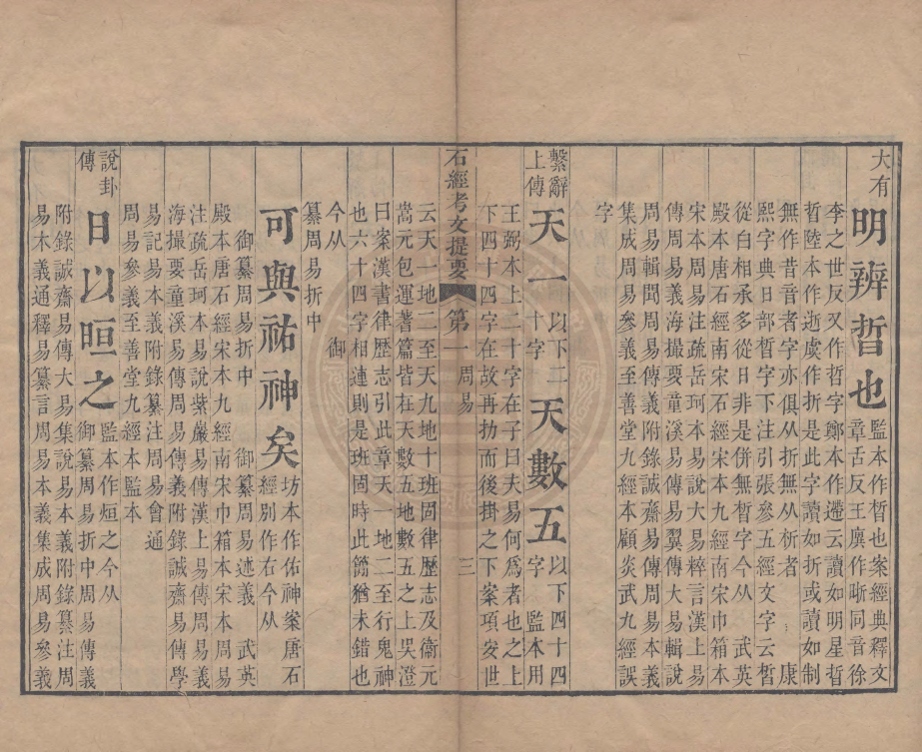 大有
明辨晳也監本作晳也案經典釋文
章舌反王廙作晣同音徐
李之世反又作哲字鄭本作遰云讀如明星晳
晳陸本作逝虞作折是此字讀如折或讀如制
無作昔音者字亦俱从折無从析者　康
熙字典日部晳字下注引張參五經文字云晳
從白相承多從日非是併無晳字今从　武英
殿本唐石經南宋石經宋本九經南宋巾箱本
宋本周易注疏岳珂本易說大易粹言漢上易
傳周易義海撮要童溪易傳易翼傳大易輯說
周易輯聞周易本義附錄誠齋易傳周易本義
集成周易參義至善堂九經本顧炎武九經誤
字
繫辭上傳
天一以下二十字天數五以下四十四字監本用
王弼本上二十字在子曰夫易何爲者也之上
下四十四字在故再扐而後掛之下案項安世
石經考文提要　第一　周易　三
云天一地二至天九地十班固律歷志及衛元
嵩元包運蓍篇皆在天數五地數五之上吳澄
曰案漢書律歷志引此章天一地二至行鬼神
也六十四字相連則是班固時此簡猶未錯也
今从　御
纂周易折中
可與祐神矣坊本作佑神案唐石經別作右今从
御纂周易折中　御纂周易述義　武英
殿本唐石經宋本九經南宋巾箱本宋本周易
注疏岳珂本易說紫巖易傳漢上易傳周易義
海撮要童溪易傳周易傳義附錄誠齋易傳學
易記易本義附錄纂注周易會通
周易參義至善堂九經本監本
說卦傳
日以晅之監本作烜之今从
御纂周易折中周易傳義
附錄誠齋易傳大易集說易本義附錄纂注周
易本義通釋易纂言周易本義集成周易參義